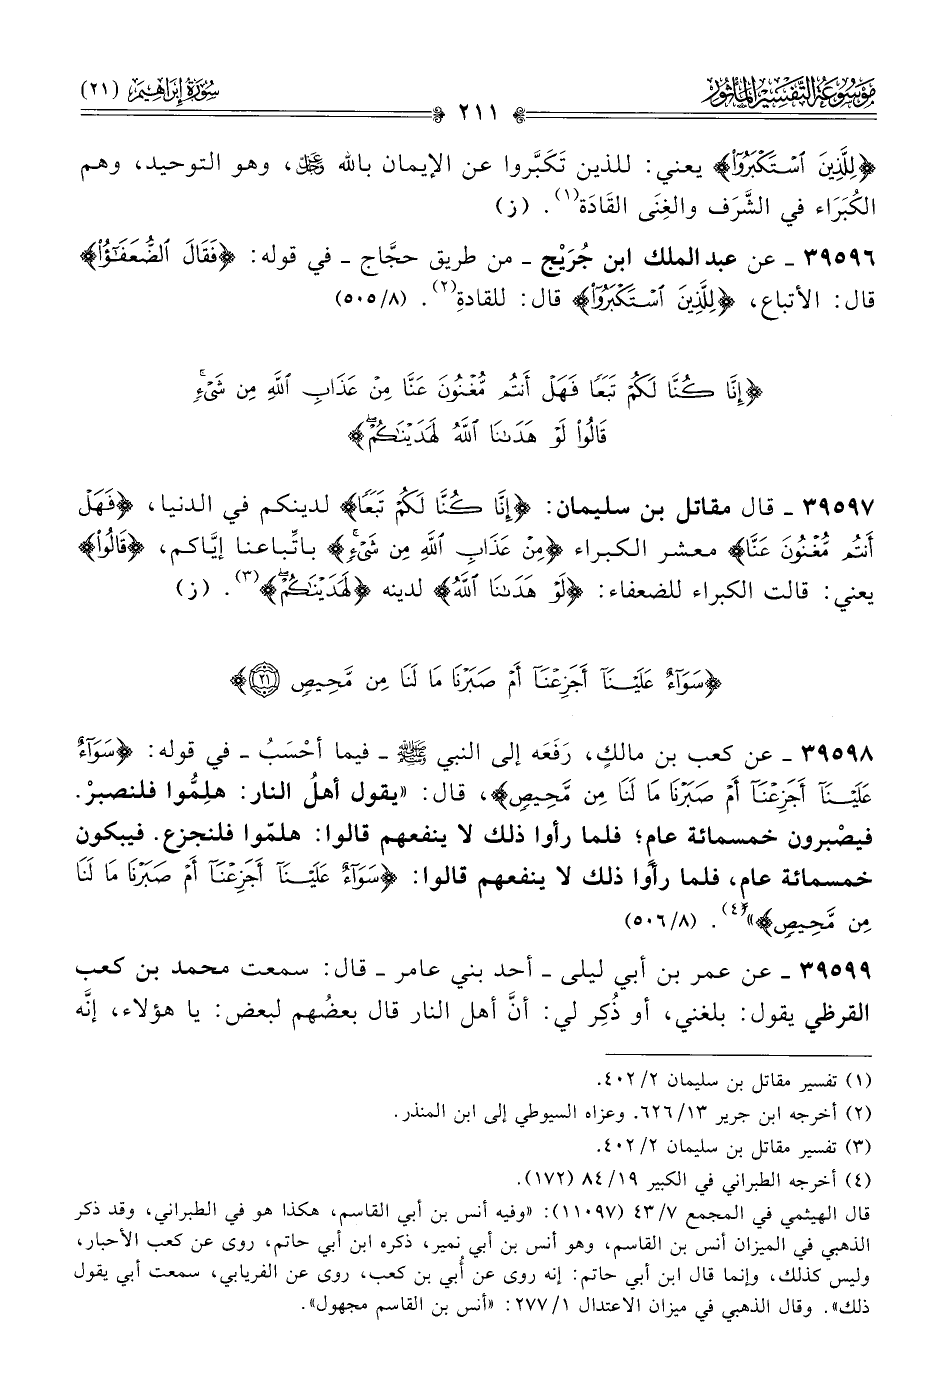 مَوْسُوعَةُ التَّفْسِيرِ المَأْثُورِ
سُورَةُ إِبْرَاهِيمَ (٢١)
٢١١
﴿لِلَّذِينَ ٱسْتَكْبَرُوٓا۟﴾ يعني: للذين تَكَبَّروا عن الإيمان بالله ﷿، وهو التوحيد، وهم
الكُبَرَاء في الشَّرَف والغِنَى القَادَة(١). (ز)
٣٩٥٩٦ ـ عن عبد الملك ابن جُرَيْج ـ من طريق حجَّاج ـ في قوله: ﴿فَقَالَ ٱلضُّعَفَـٰٓؤُا۟﴾
قال: الأتباع، ﴿لِلَّذِينَ ٱسْتَكْبَرُوٓا۟﴾ قال: للقادةِ(٢). (٥٠٥/٨)
﴿إِنَّا كُنَّا لَكُمْ تَبَعًا فَهَلْ أَنتُم مُّغْنُونَ عَنَّا مِنْ عَذَابِ ٱللَّهِ مِن شَىْءٍۚ
قَالُوا۟ لَوْ هَدَىٰنَا ٱللَّهُ لَهَدَيْنَـٰكُمْۖ﴾
٣٩٥٩٧ ـ قال مقاتل بن سليمان: ﴿إِنَّا كُنَّا لَكُمْ تَبَعًا﴾ لدينكم في الدنيا، ﴿فَهَلْ
أَنتُم مُّغْنُونَ عَنَّا﴾ معشر الكبراء ﴿مِنْ عَذَابِ ٱللَّهِ مِن شَىْءٍۚ﴾ باتِّباعنا إيَّاكم، ﴿قَالُوا۟﴾
يعني: قالت الكبراء للضعفاء: ﴿لَوْ هَدَىٰنَا ٱللَّهُ﴾ لدينه ﴿لَهَدَيْنَـٰكُمْۖ﴾(٣). (ز)
﴿سَوَآءٌ عَلَيْنَآ أَجَزِعْنَآ أَمْ صَبَرْنَا مَا لَنَا مِن مَّحِيصٍ ٢١﴾
٣٩٥٩٨ ـ عن كعب بن مالكٍ، رَفَعَه إلى النبي ﷺ ـ فيما أحْسَبُ ـ في قوله: ﴿سَوَآءٌ
عَلَيْنَآ أَجَزِعْنَآ أَمْ صَبَرْنَا مَا لَنَا مِن مَّحِيصٍ﴾، قال: «يقول أهلُ النار: هلِمُّوا فلنصبرْ.
فيصْبرون خمسمائة عام؛ فلما رأوا ذلك لا ينفعهم قالوا: هلمّوا فلنجزع. فيبكون
خمسمائة عام، فلما رأَوا ذلك لا ينفعهم قالوا: ﴿سَوَآءٌ عَلَيْنَآ أَجَزِعْنَآ أَمْ صَبَرْنَا مَا لَنَا
مِن مَّحِيصٍ﴾»(٤). (٥٠٦/٨)
٣٩٥٩٩ ـ عن عمر بن أبي ليلى ـ أحد بني عامر ـ قال: سمعت محمد بن كعب
القرظي يقول: بلغني، أو ذُكِر لي: أنَّ أهل النار قال بعضُهم لبعض: يا هؤلاء، إنَّه
(١) تفسير مقاتل بن سليمان ٤٠٢/٢.
(٢) أخرجه ابن جرير ٦٢٦/١٣. وعزاه السيوطي إلى ابن المنذر.
(٣) تفسير مقاتل بن سليمان ٤٠٢/٢.
(٤) أخرجه الطبراني في الكبير ٨٤/١٩ (١٧٢).
قال الهيثمي في المجمع ٤٣/٧ (١١٠٩٧): «وفيه أنس بن أبي القاسم، هكذا هو في الطبراني، وقد ذكر
الذهبي في الميزان أنس بن القاسم، وهو أنس بن أبي نمير، ذكره ابن أبي حاتم، روى عن كعب الأحبار،
وليس كذلك، وإنما قال ابن أبي حاتم: إنه روى عن أُبي بن كعب، روى عن الفريابي، سمعت أبي يقول
ذلك». وقال الذهبي في ميزان الاعتدال ٢٧٧/١: «أنس بن القاسم مجهول».